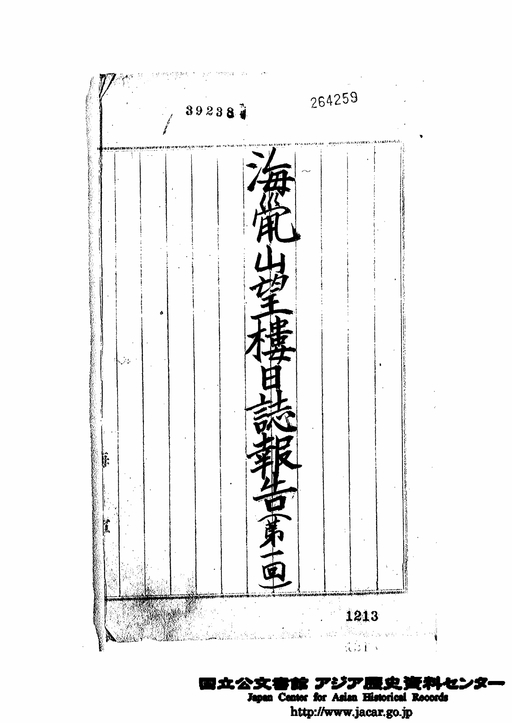 39238
264259
海鼡山望樓日誌報告(第一回)
海
1213
国立公文書館 アジア歴史資料センター
Japan Center for Asian Historical Records
http://www.jacar.go.jp